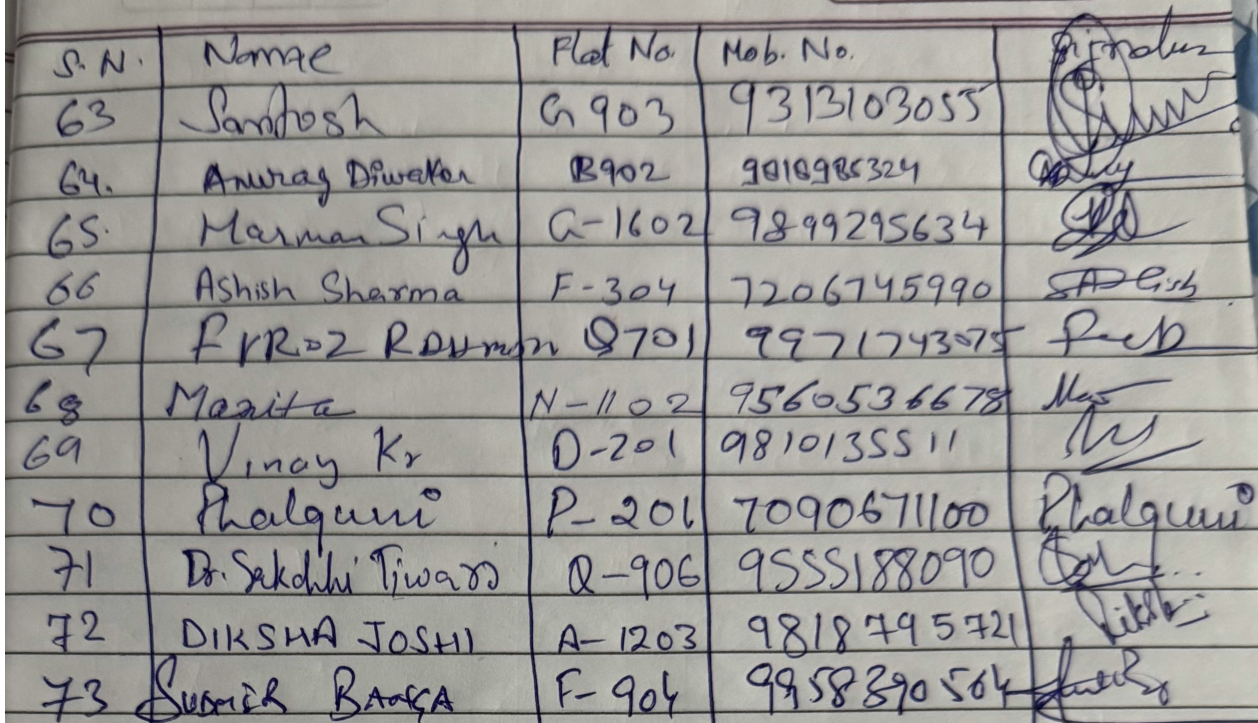 S.N. Name Flat No. Mob. No.
63 Santosh G 903 9313103055
64. Anurag Diwaker B902 9818986324
65. Harman Singh G-1602 9899295634
66 Ashish Sharma F-304 7206745990
67 Q701 9971743075
68 Manita N-1102 9560536678
69 Vinay Kr D-201 9810135511
70 Phalguni P-201 7090671100 Phalguni
71 Dr. Sakchhi Tiwari Q-906 9555188090
72 DIKSHA JOSHI A-1203 9818795721
73 F-904 9958390564